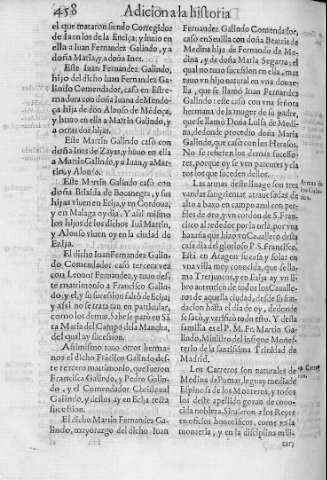 458 Adicion a la historia
el que mataron siendo Corregidor
de Iaen los de la Enelça; y huuo en
ella a Iuan Fernandez Galindo, y a
doña Maria, y a doña Ines.
Este Iuan Fernandez Galindo,
hijo del dicho Iuan Fernandez Ga-
lindo Comendador, casò en Estre-
madura con doña Iuana de Mendo-
ça hija de don Alonso de Mẽdoça,
y huuo en ella a Martin Galindo, y
a otras dos hijas.
Este Martin Galindo casò con
doña Ines de Zayas, y huuo en ella
a Martin Galindo, y a Iuan, y a Mar-
tin, y Alonso.
Este Martin Galindo casò con
doña Eluisa de Bocanegra, y sus
hijos viuen en Ecija, y en Cordoua,
y en Malaga oy dia. Y assi mismo
los hijos de los dichos Iuã Martin,
y Alonso viuen oy en la ciudad de
Ecija.
El dicho Iuan Fernandez Galin-
do Comendador casò tercera vez
con Leonor Fernandez, y tuuo des-
te matrimonio a Francisco Galin-
do, y el, y su sucession salio de Ecija;
y assi no se trata tan en particular,
como los demas. Sabese parò en Sã
ta Maria del Campo de la Mancha,
del qual ay sucession.
Assimismo tuuo otros herma-
nos el dicho Frãcisco Galindo des-
te tercero matrimonio, que fueron
Francisca Galindo, y Pedro Galin-
do, y el Comendador Christoual
Galindo, y destos ay en Ecija recta
sucession.
El dicho Martin Fernandez Ga-
lindo, mayorazgo del dicho Iuan
Fernandez Galindo Comendador,
casò en Seuilla con doña Beatriz de
Medina hija de Fernando de Me-
dina, y de doña Maria Segarra, el
qual no tuuo sucession en ella, mas
tuuo vn hijo natural de vna dueña,
que se llamò Iuan Fernandez
Galindo: este casò con vna señora
hermana de la muger de su padre,
que se llamò Doña Luisa de Medi-
na, de donde procedio doña Maria
Galindo, que casò con los Herasos.
No se refieren los demas sucesso-
res, porque oy se ven parentes y cla-
ros los que suceden dellos.
Las armas deste linage son tres
vandas sangrientas atrauesadas de
alto a baxo en campo azul con per-
files de oro, y vn cordon de S. Fran-
cisco al rededor por la orla, por vna
hazaña que hizo vn Cauallero desta
casa dia del glorioso P. S. Francisco.
Està en Aragon su casa y solar en
vna villa muy conocida, que se lla-
ma Trespancos, y en Ecija ay vn li-
bro autentico de todos los Caualle-
ros de aquella ciudad, desde su fun-
dacion hasta el dia de oy, de donde
se sacò, y verificò todo esto. Y desta
familia es el P. M. Fr. Martin Ga-
lindo, Ministro del insigne Mones-
terio de la santissima Trinidad de
Madrid.
Los Carreros son naturales de
Medina de Pumar, lugar y mediade
Espinosa de los Monteros, y todos
los deste apellido gozan de cono-
cida nobleza. Siruieron a los Reyes
en oficios honorificos, como en la
monteria, y en la disciplina mili-
tar;